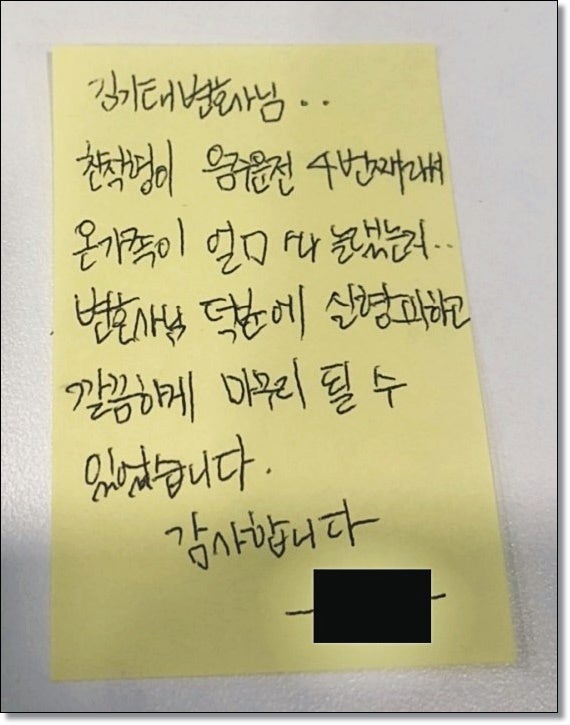 김기태변호사님..
찬착멍이 음주운전 4번째래서
온가족이 얼마나 놀랬는지..
변호사님 덕분에 실형피하고
깔끔하게 마무리 될 수
있었습니다.
감사합니다